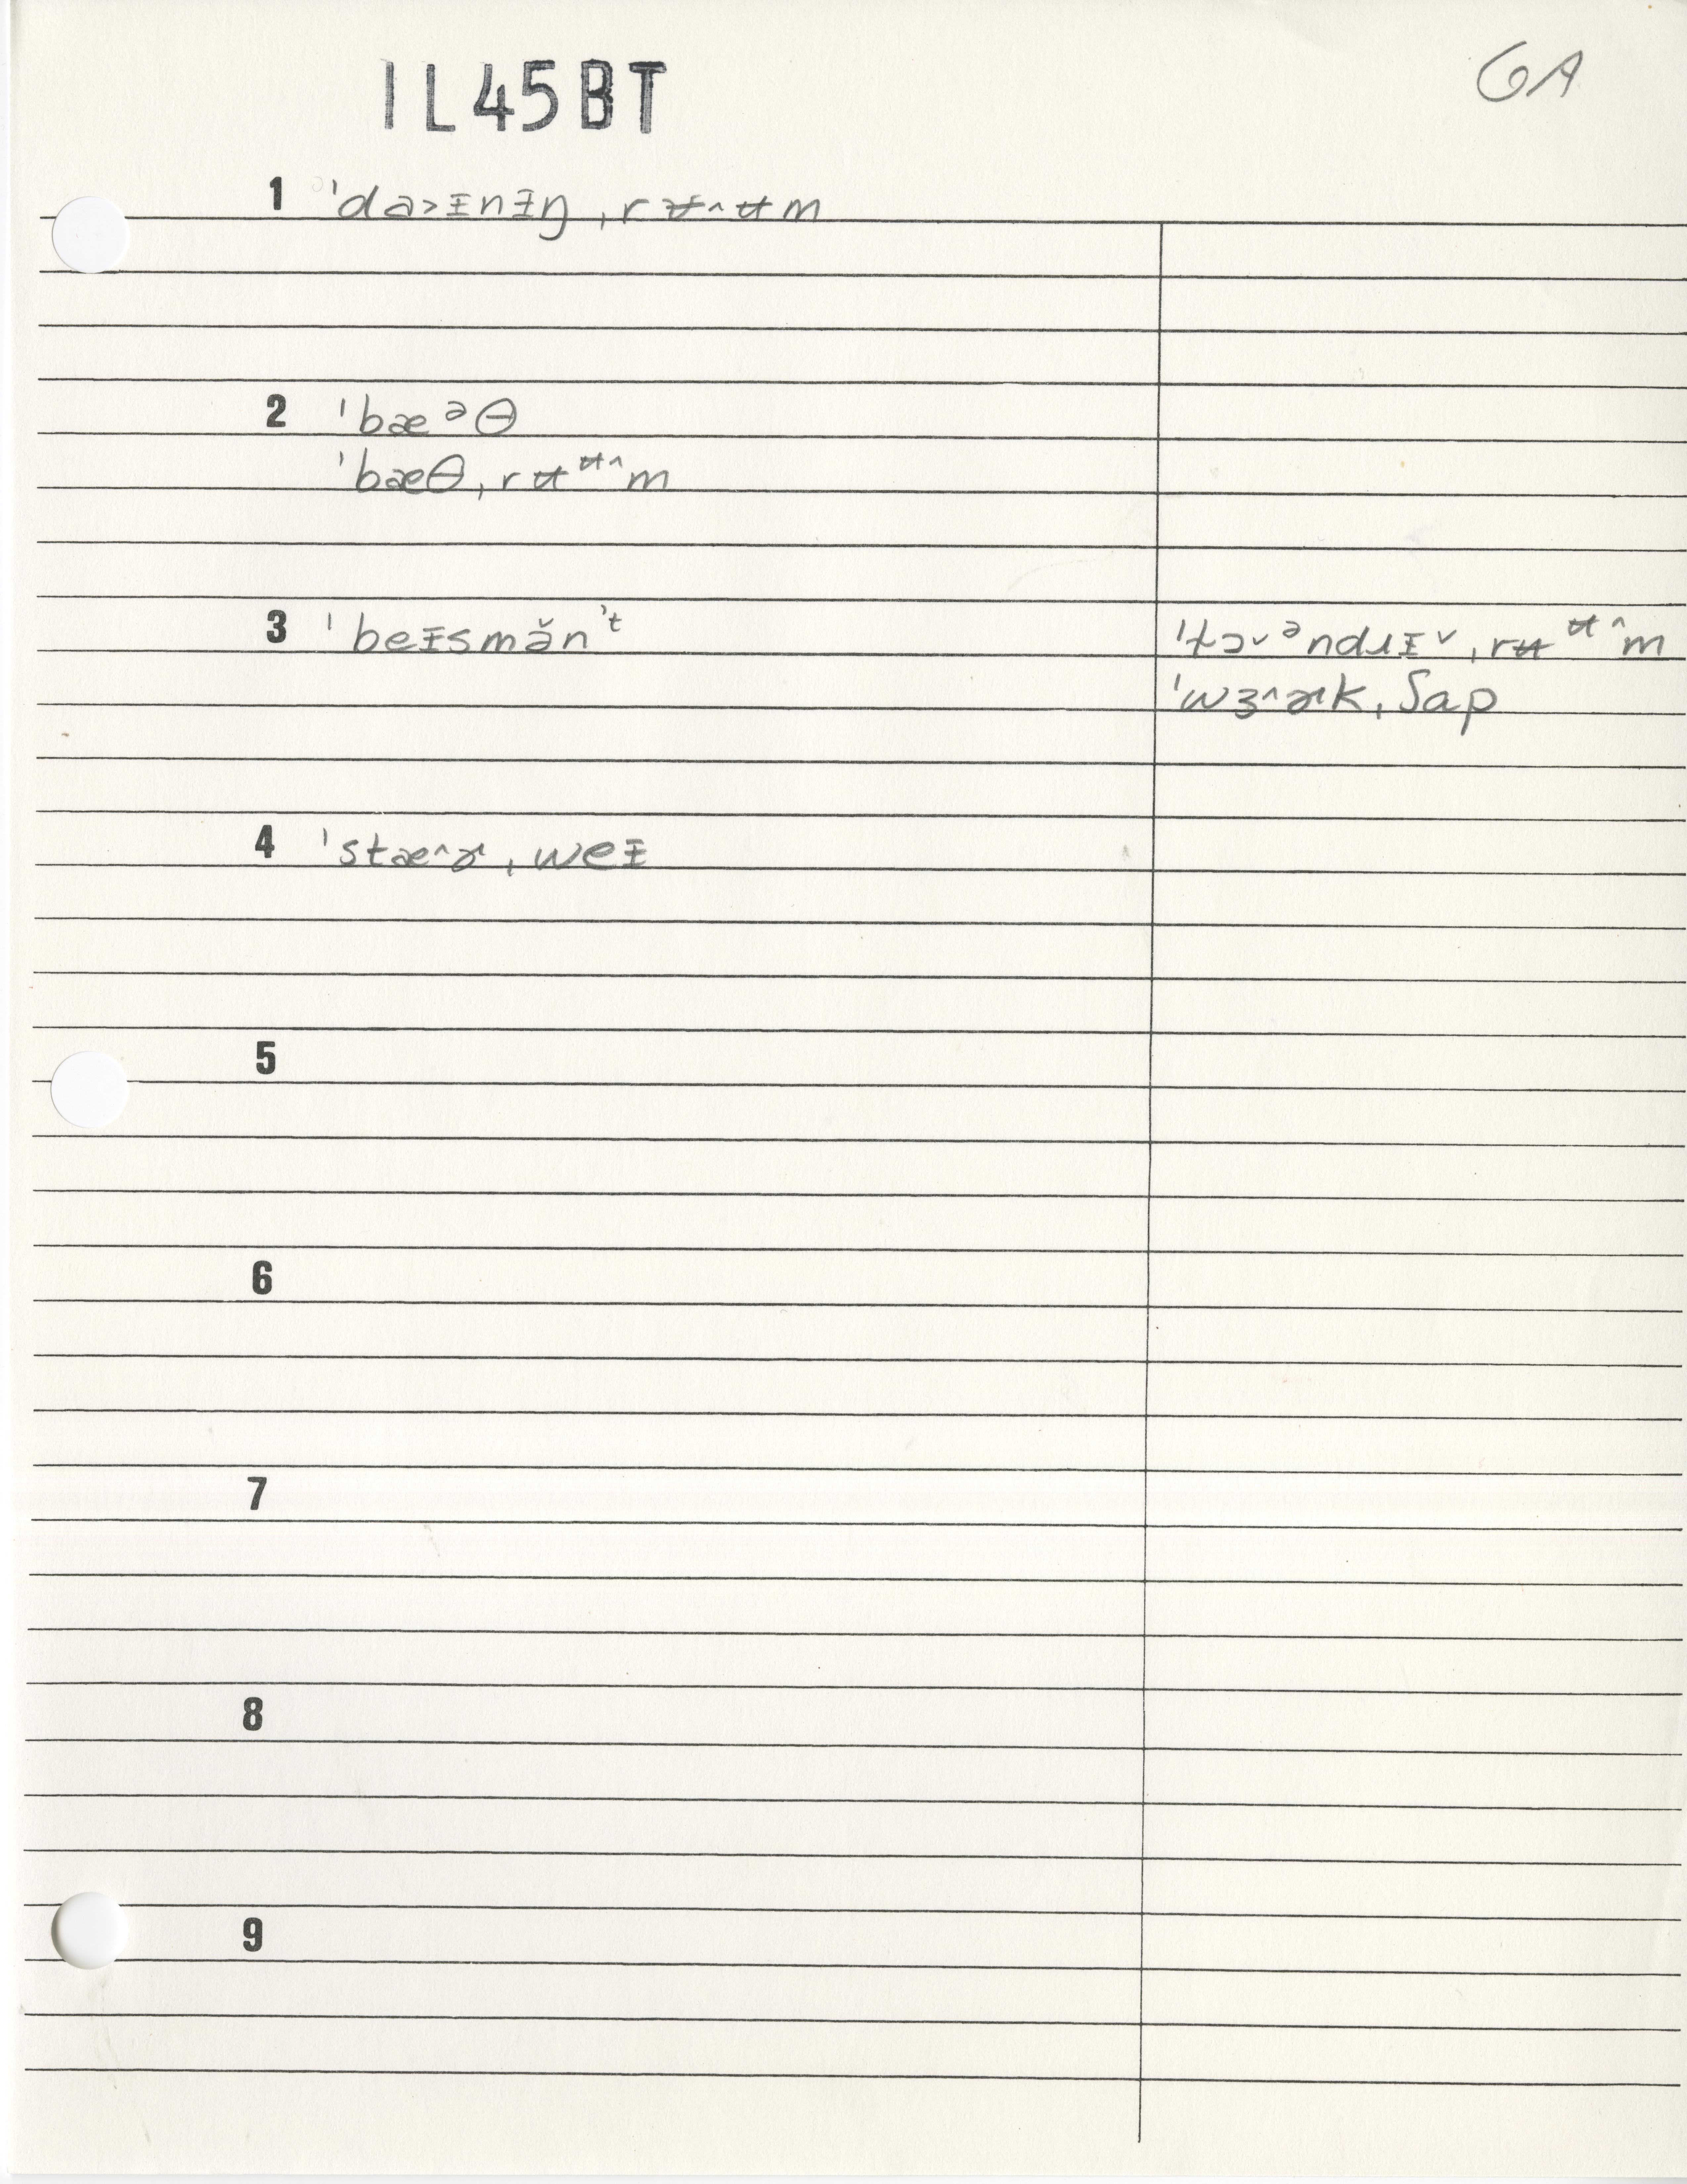 IL45BT
6A
1 ˈda˃ᵻnᵻŋ ˌrʉ˄ʉm
2 ˈbæᵊθ
ˈbæθˌrʉᶶ˄m
3 ˈbeᵻsmə̆nˀᵗ
ˈlɔ˅ᵊndɹᵻ˅ ˌrʉᶶ˄m
ˈwɜ˄ɚk ˌʃap
4 ˈstæ˄ɚ ˌweᵻ
5
6
7
8
9